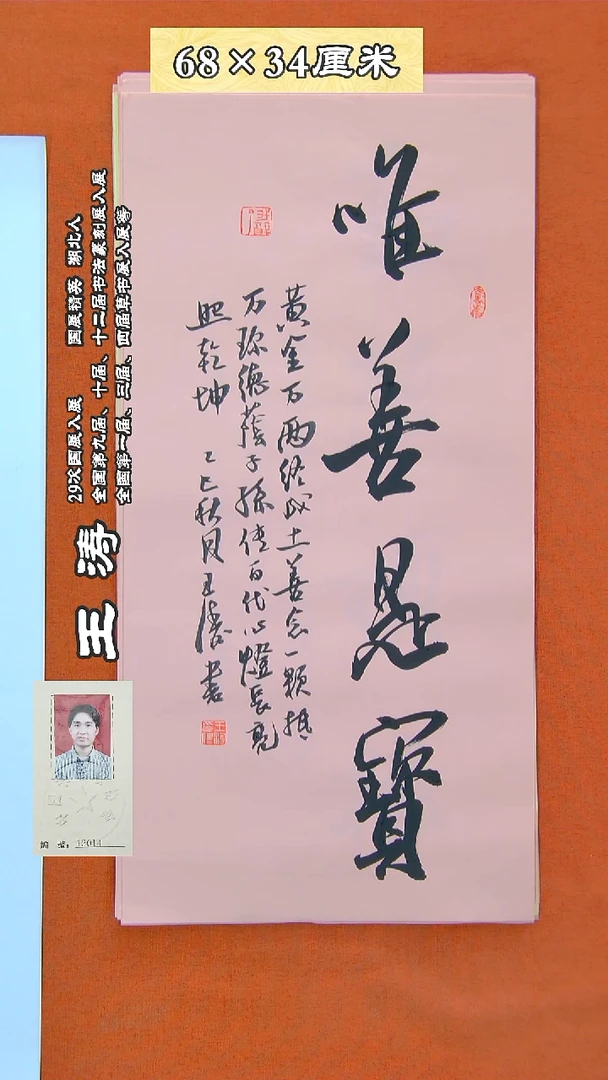 68×34厘米
唯善是寶
黄金万两终成土善念一颗抵
万珍德荫子孫傳百代心燈長亮
照乾坤 乙巳秋月王濤書
29次国展入展 国展精英 湖北人
全国第九届、十届、十二届书法篆刻展入展
全国第二届、三届、四届草书展入展等
王涛